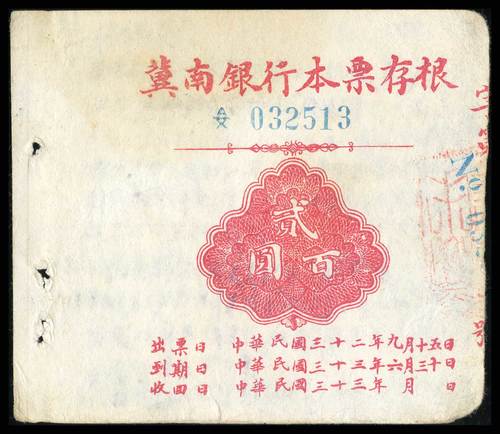 冀南銀行本票存根
032513
貳百圓
出票日 中華民國三十二年九月十五日
到期日 中華民國三十三年六月三十日
收回日 中華民國三十三年 月 日
字第
No 03
號